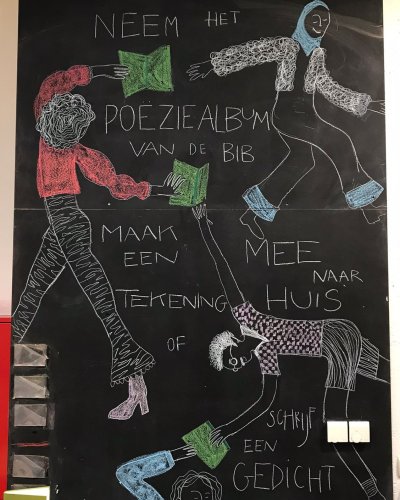 NEEM HET
POËZIEALBUM
VAN DE BIB
MEE
NAAR
HUIS
MAAK
EEN
TEKENING
OF
SCHRIJF
EEN
GEDICHT